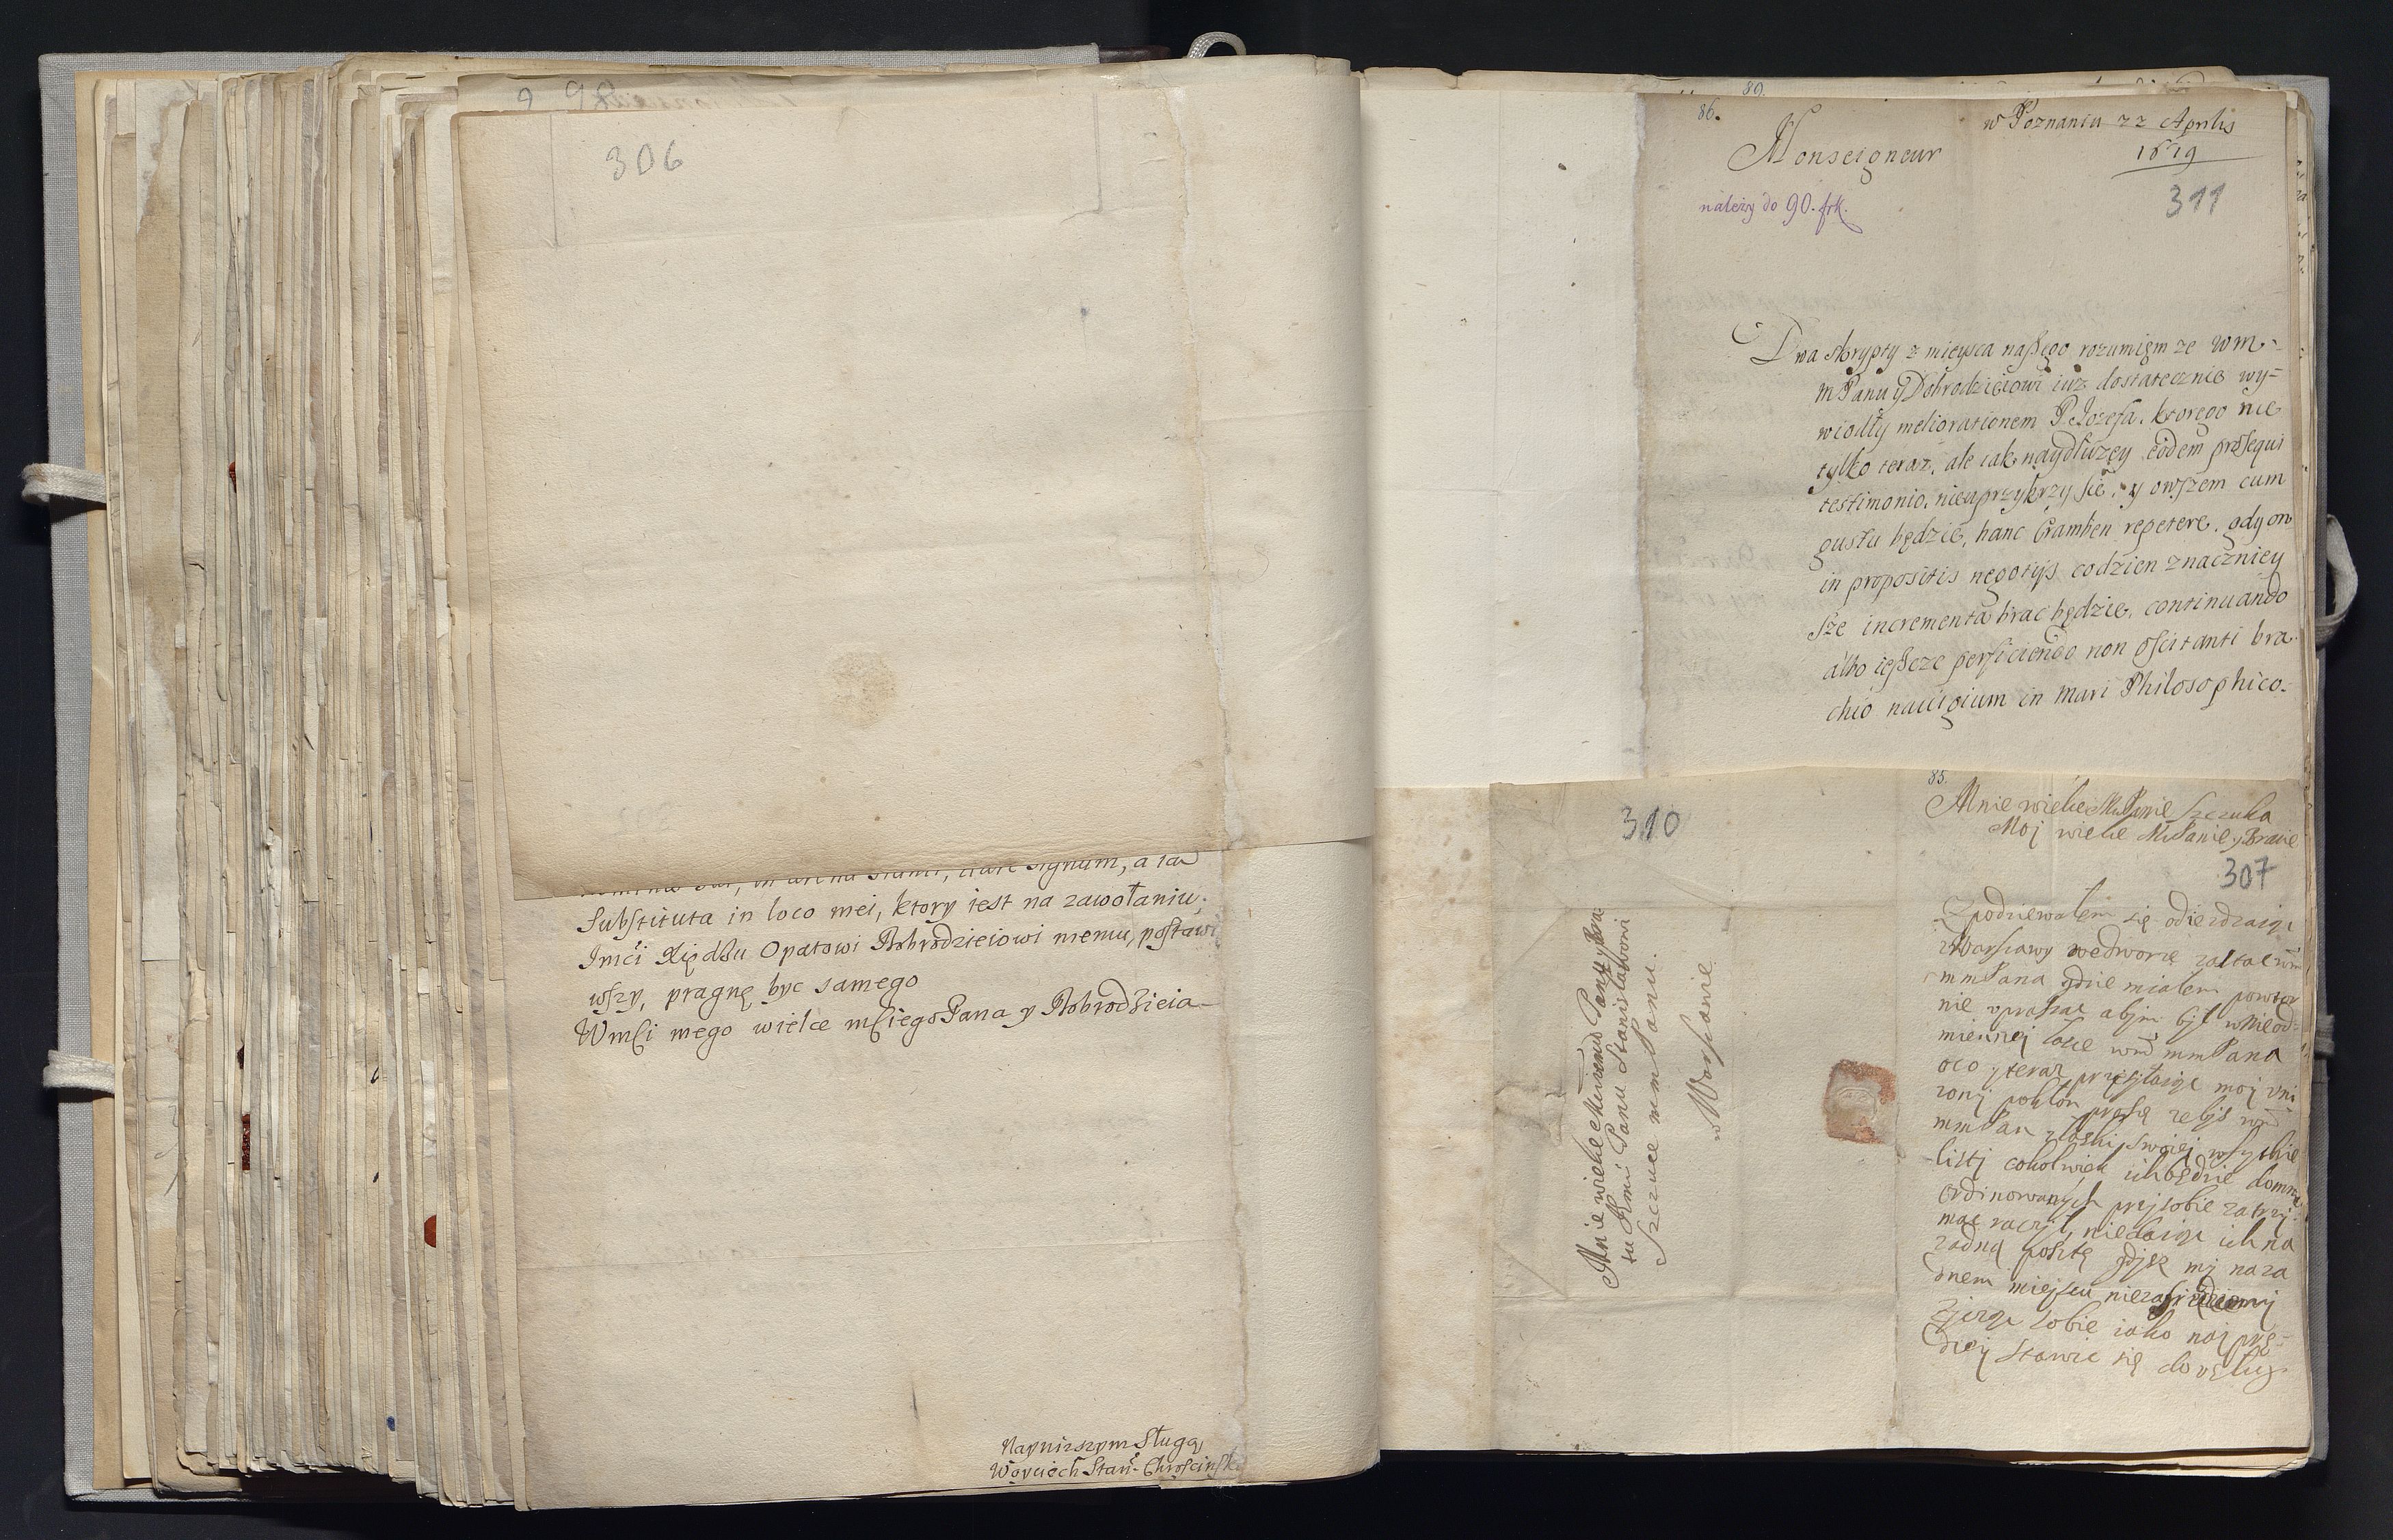 306
Substituta in loco mei, ktory iest na zawołaniu,
Imći Xiędzu Opatowi Dobrodzieiowi memu, postawi
wszy, pragnę byc samego
Wmści mego wielce mściego Pana y Dobrodzieia
Nayniższym Sługą
Woyciech Stan: Chrościnski
89.
86.
w Poznaniu 22 Aprilis
Monseigneur
należy do 90. frk.
311
Dwa skrypty z mieysca nassego rozumiem ze wm
mPanu y Dobrodzieiowi iuz dostatecznie wy=
wiodły meliorationem P. Jozefa. ktorego nie
tylko teraz, ale iak naydłuzey eodem prosequi
testimonio, nieuprzykrzy sie, y owszem cum
gustu będzie, hanc Cramben repetere, gdy on
in propositis negotijs codzien znaczniey
sze incrementa brac będzie, continuando
albo ieszcze perficiendo non oscitanti bra
chio nauigium in mari Philosophico.
310
Mnie wielce
tu Panu Stanisławowi
Szczuce mm Panu.
w Warszawie
85.
Mnie wielce MPanie Szczuka
Moj wielce MPanie y Bracie
307
Spodziewałem się odiezdzaiąc
z Warszawy
mmPana gdzie miałem powtor
nie upraszac abym był w nieod=
miennej łasce wm mmPana
oco y teraz przesyłaiąc moj uni
zony pokłon proszę zebys wm
mmPan z łaski swojej wszytkie
listy cokolwiek ich będzie do mnie
ordinowanych przy sobie zatrzy
mac raczył, niedaiąc ich na
zadną posztę gdysz my na za
dnem miejscu
zycząc sobie iako naj prę=
dzej stawic się do usług